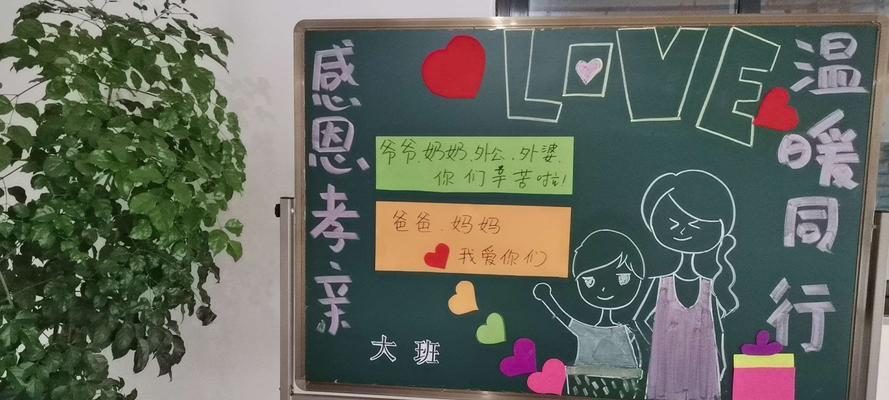 感恩孝亲
LOVE
温暖同行
爷爷、奶奶、外公、外婆、
你们辛苦啦!
爸爸、妈妈
我爱你们
大班